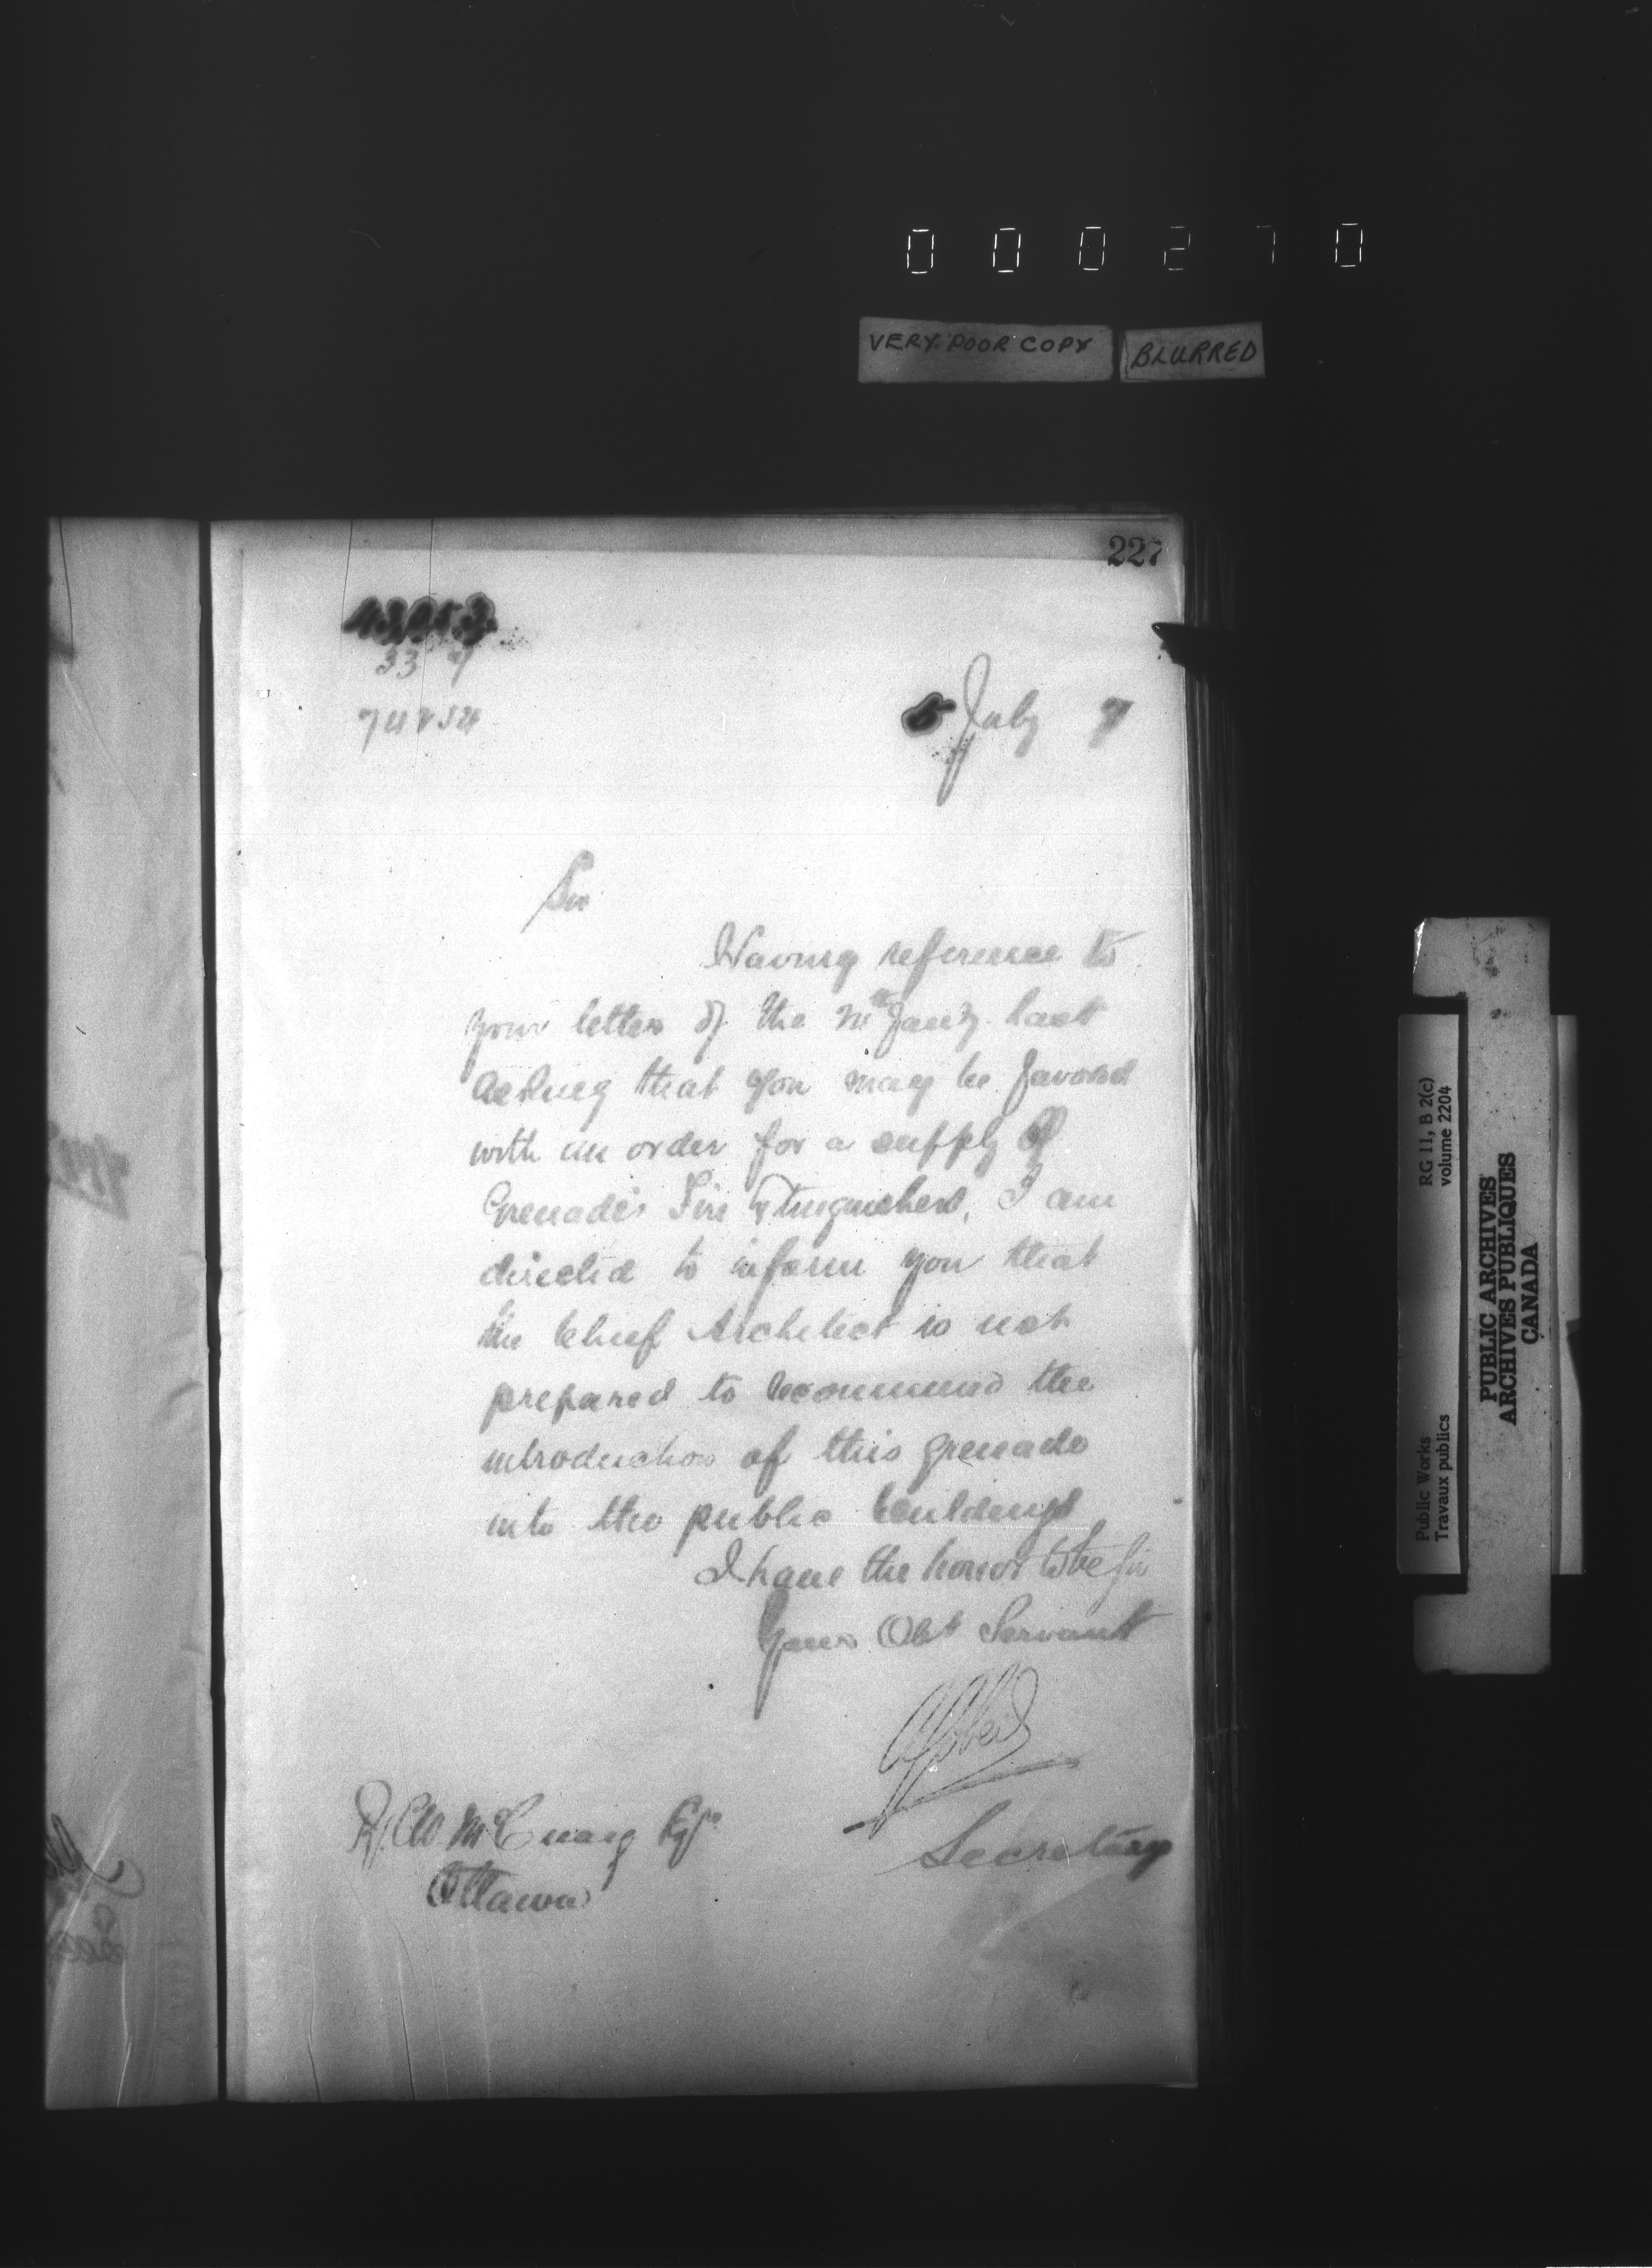 000270
VERY POOR COPY BLURRED
227
43053
33
5 July 7
Sir
Having reference to
your letter of the Jany. last
asking that you may be favored
with an order for a supply of
Grenades Fire Extinguishers, I am
directed to inform you that
the Chief Architect is not
prepared to recommend the
introduction of this grenade
into the public buildings
I have the honor to be Sir
Your Obt Servant
Secretary
McCuaig Esqr
Ottawa
Public Works RG 11, B 2(c)
Travaux publics volume 2204
PUBLIC ARCHIVES
ARCHIVES PUBLIQUES
CANADA